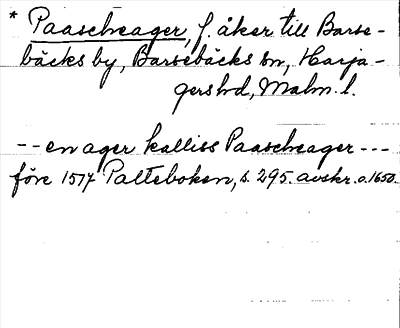 * Paascheager, f. åker till Barse-
bäcks by, Barsebäcks sn, Harja-
gers hd, Malm. l.
-- en ager kalliss Paascheager ---
före 1517 Palteboken, s. 295. avskr. o. 1650.